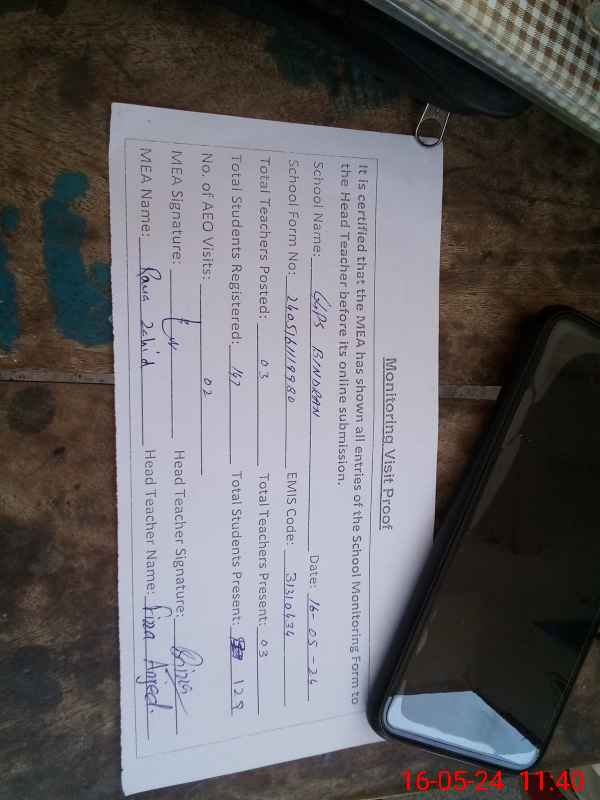 Monitoring Visit Proof
It is certified that the MEA has shown all entries of the School Monitoring Form to
the Head Teacher before its online submission.
School Name: GGPS BINDRAN Date: 16-05-24
School Form No: EMIS Code: 31310434
Total Teachers Posted: 03 Total Teachers Present: 03
Total Students Registered: 147 Total Students Present: 129
No. of AEO Visits: 02
MEA Signature: Head Teacher Signature:
MEA Name: Rana Zahid Head Teacher Name: Fizza Amjed.
16-05-24 11:40